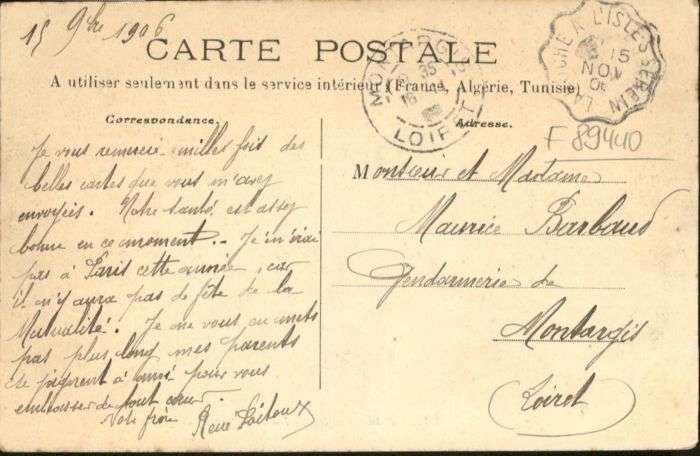 15 9bre 1906
CARTE POSTALE
A utiliser seulement dans le service intérieur (France, Algérie, Tunisie)
Correspondance.
Je vous remercie milles fois des
belles cartes que vous m'avez
envoyéis. Notre santé est assez
bonne en ce moment. - Je n'irai
pas à Paris cette année, car
il n'y aura pas de fête de la
Mutualité. Je ne vous en mets
pas plus long mes parents
se joignent à moi pour vous
embrasser de tout cœur.
Votre frère
René
Adresse.
Monsieur et Madame
Maurice Barbaud
Gendarmerie de
Montargis
Loiret
F 89440
MONTARGIS
15
16
LOIRET
LA A L'ISLE-S-SEREIN
15
NOV
06